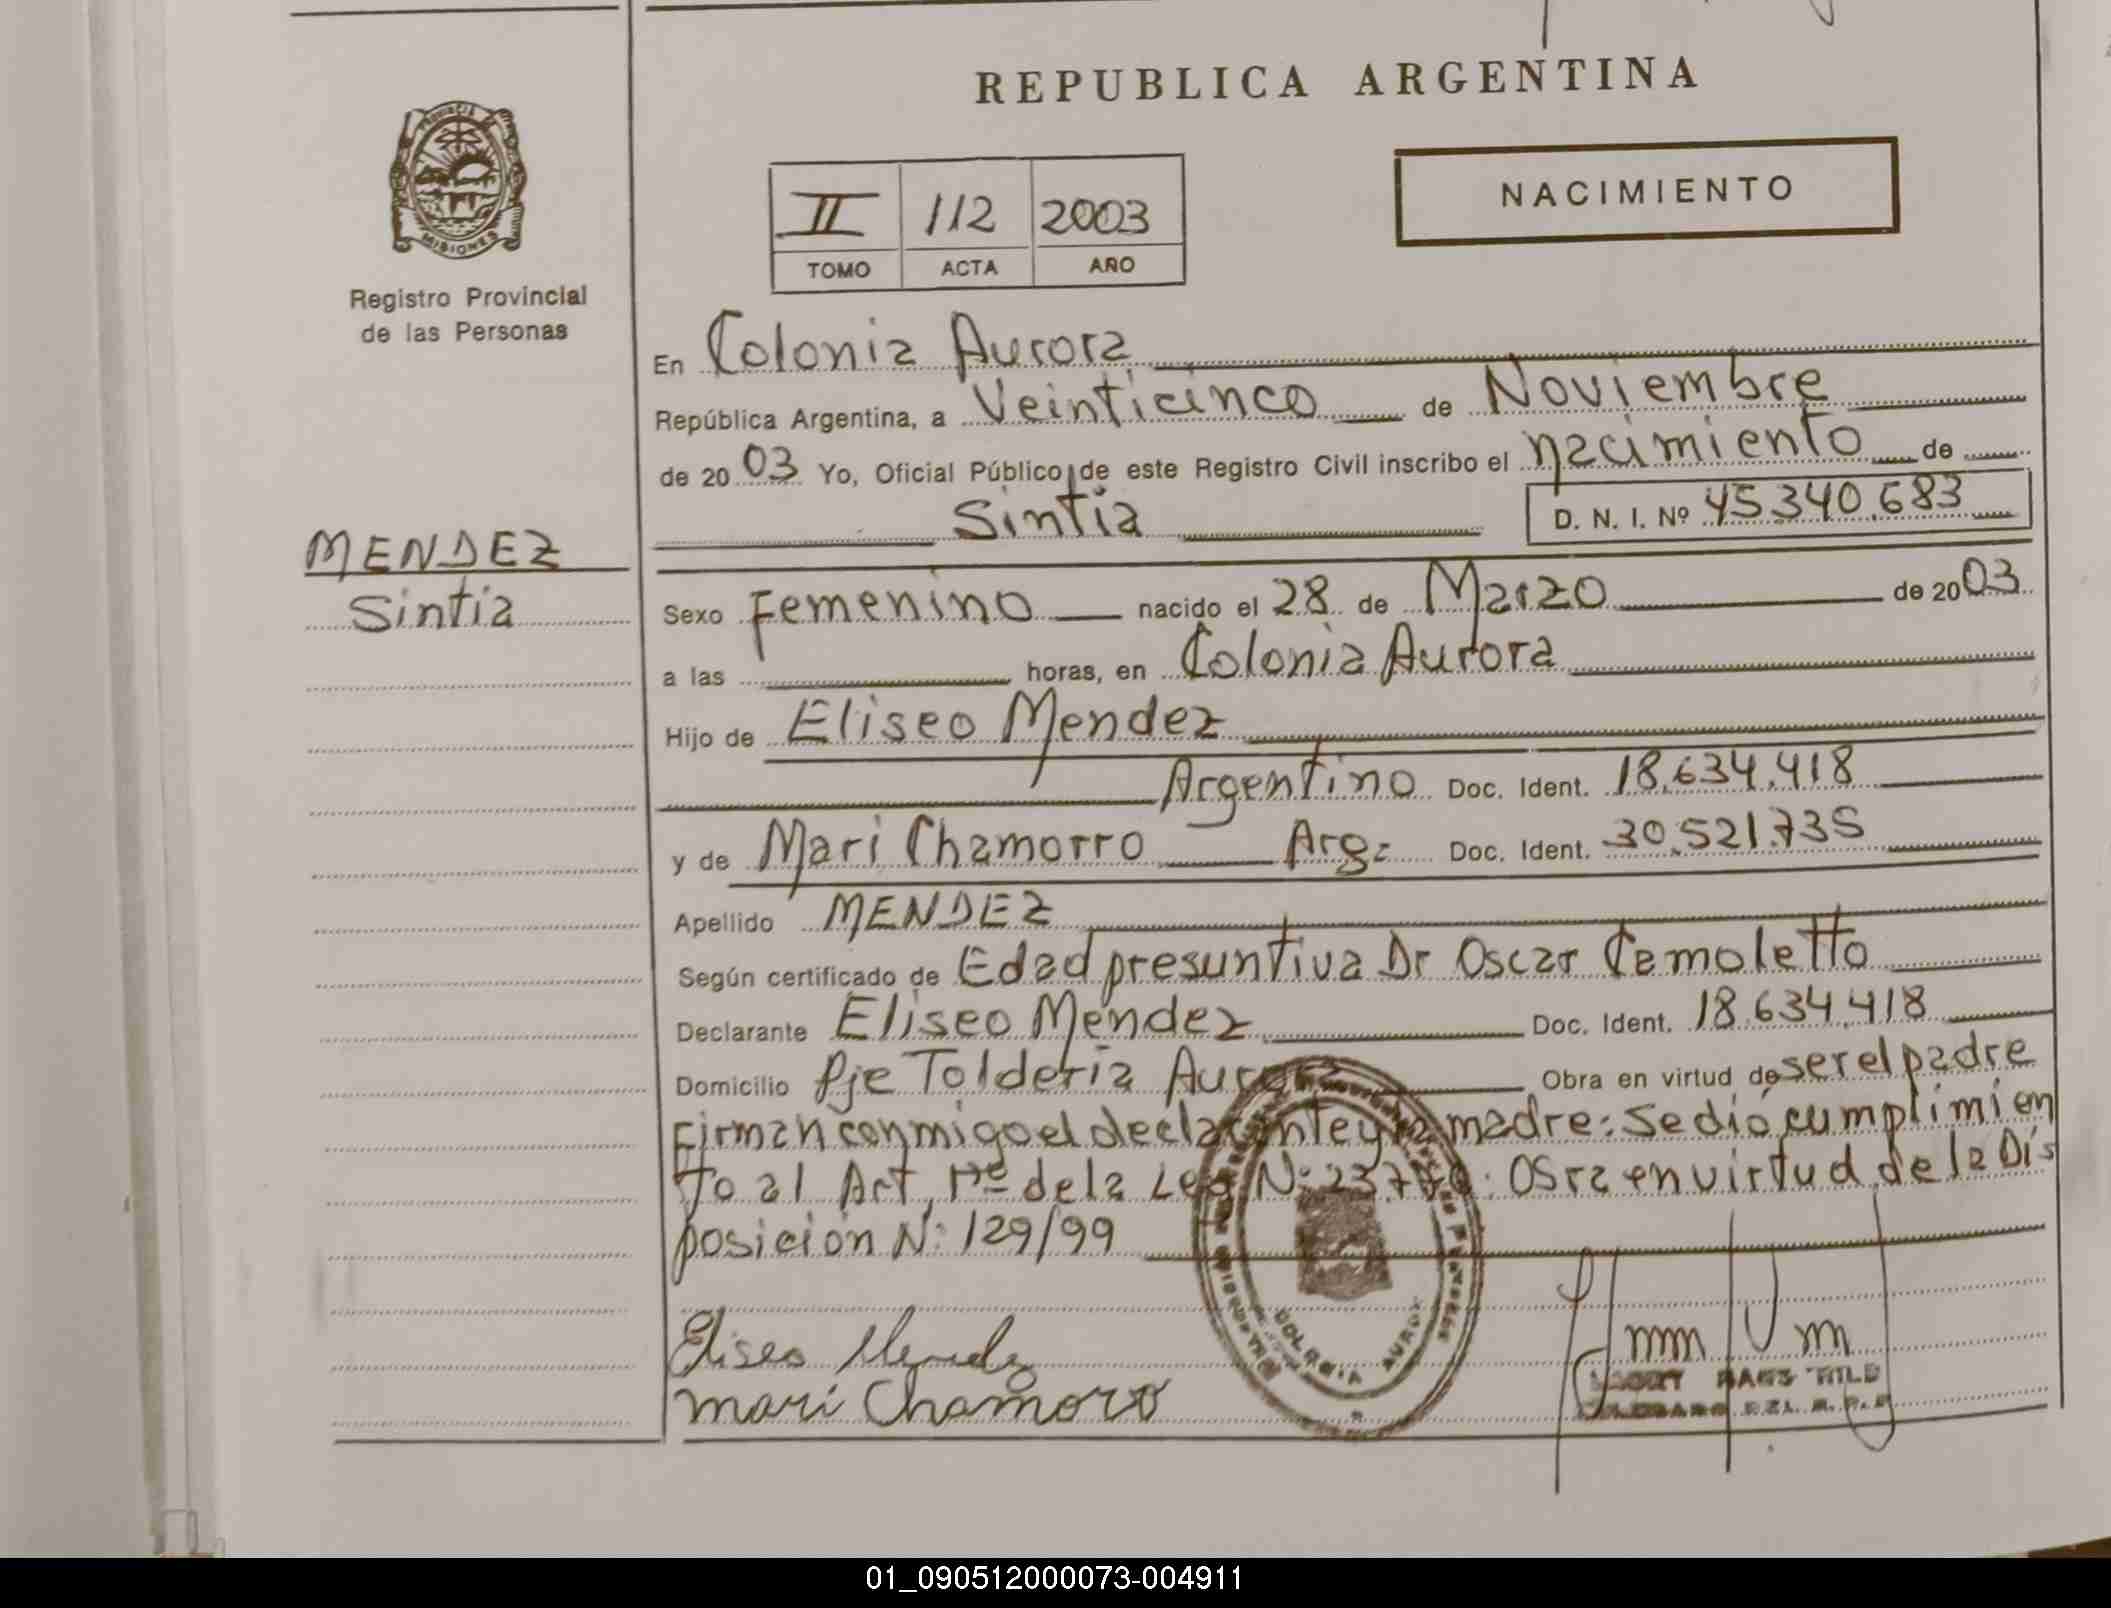 REPUBLICA ARGENTINA
NACIMIENTO
II 112 2003
TOMO ACTA AÑO
PROVINCIA DE
MISIONES
Registro Provincial
de las Personas
MENDEZ
Sintia
En Colonia Aurora
República Argentina, a Veinticinco de Noviembre
de 2003 Yo, Oficial Público de este Registro Civil inscribo el nacimiento de
Sintia D. N. I. Nº 45.340.683
Sexo Femenino nacido el 28 de Marzo de 2003
a las horas, en Colonia Aurora
Hijo de Eliseo Mendez
Argentino Doc. Ident. 18.634.418
y de Mari Chamorro Arg: Doc. Ident. 30.521.735
Apellido MENDEZ
Según certificado de Edad presuntiva Dr Oscar Camoletto
Declarante Eliseo Mendez Doc. Ident. 18.634.418
Domicilio Pje Tolderia Aurora Obra en virtud de ser el padre
Firman conmigo el declarante y la madre: Se dió cumplimien
to al Art. 1º de la Ley N: 23.776. Osra en virtud de la Dis
posición N: 129/99
Eliseo Mendez
mari Chamoro
COLONIA AURORA
01_090512000073-004911